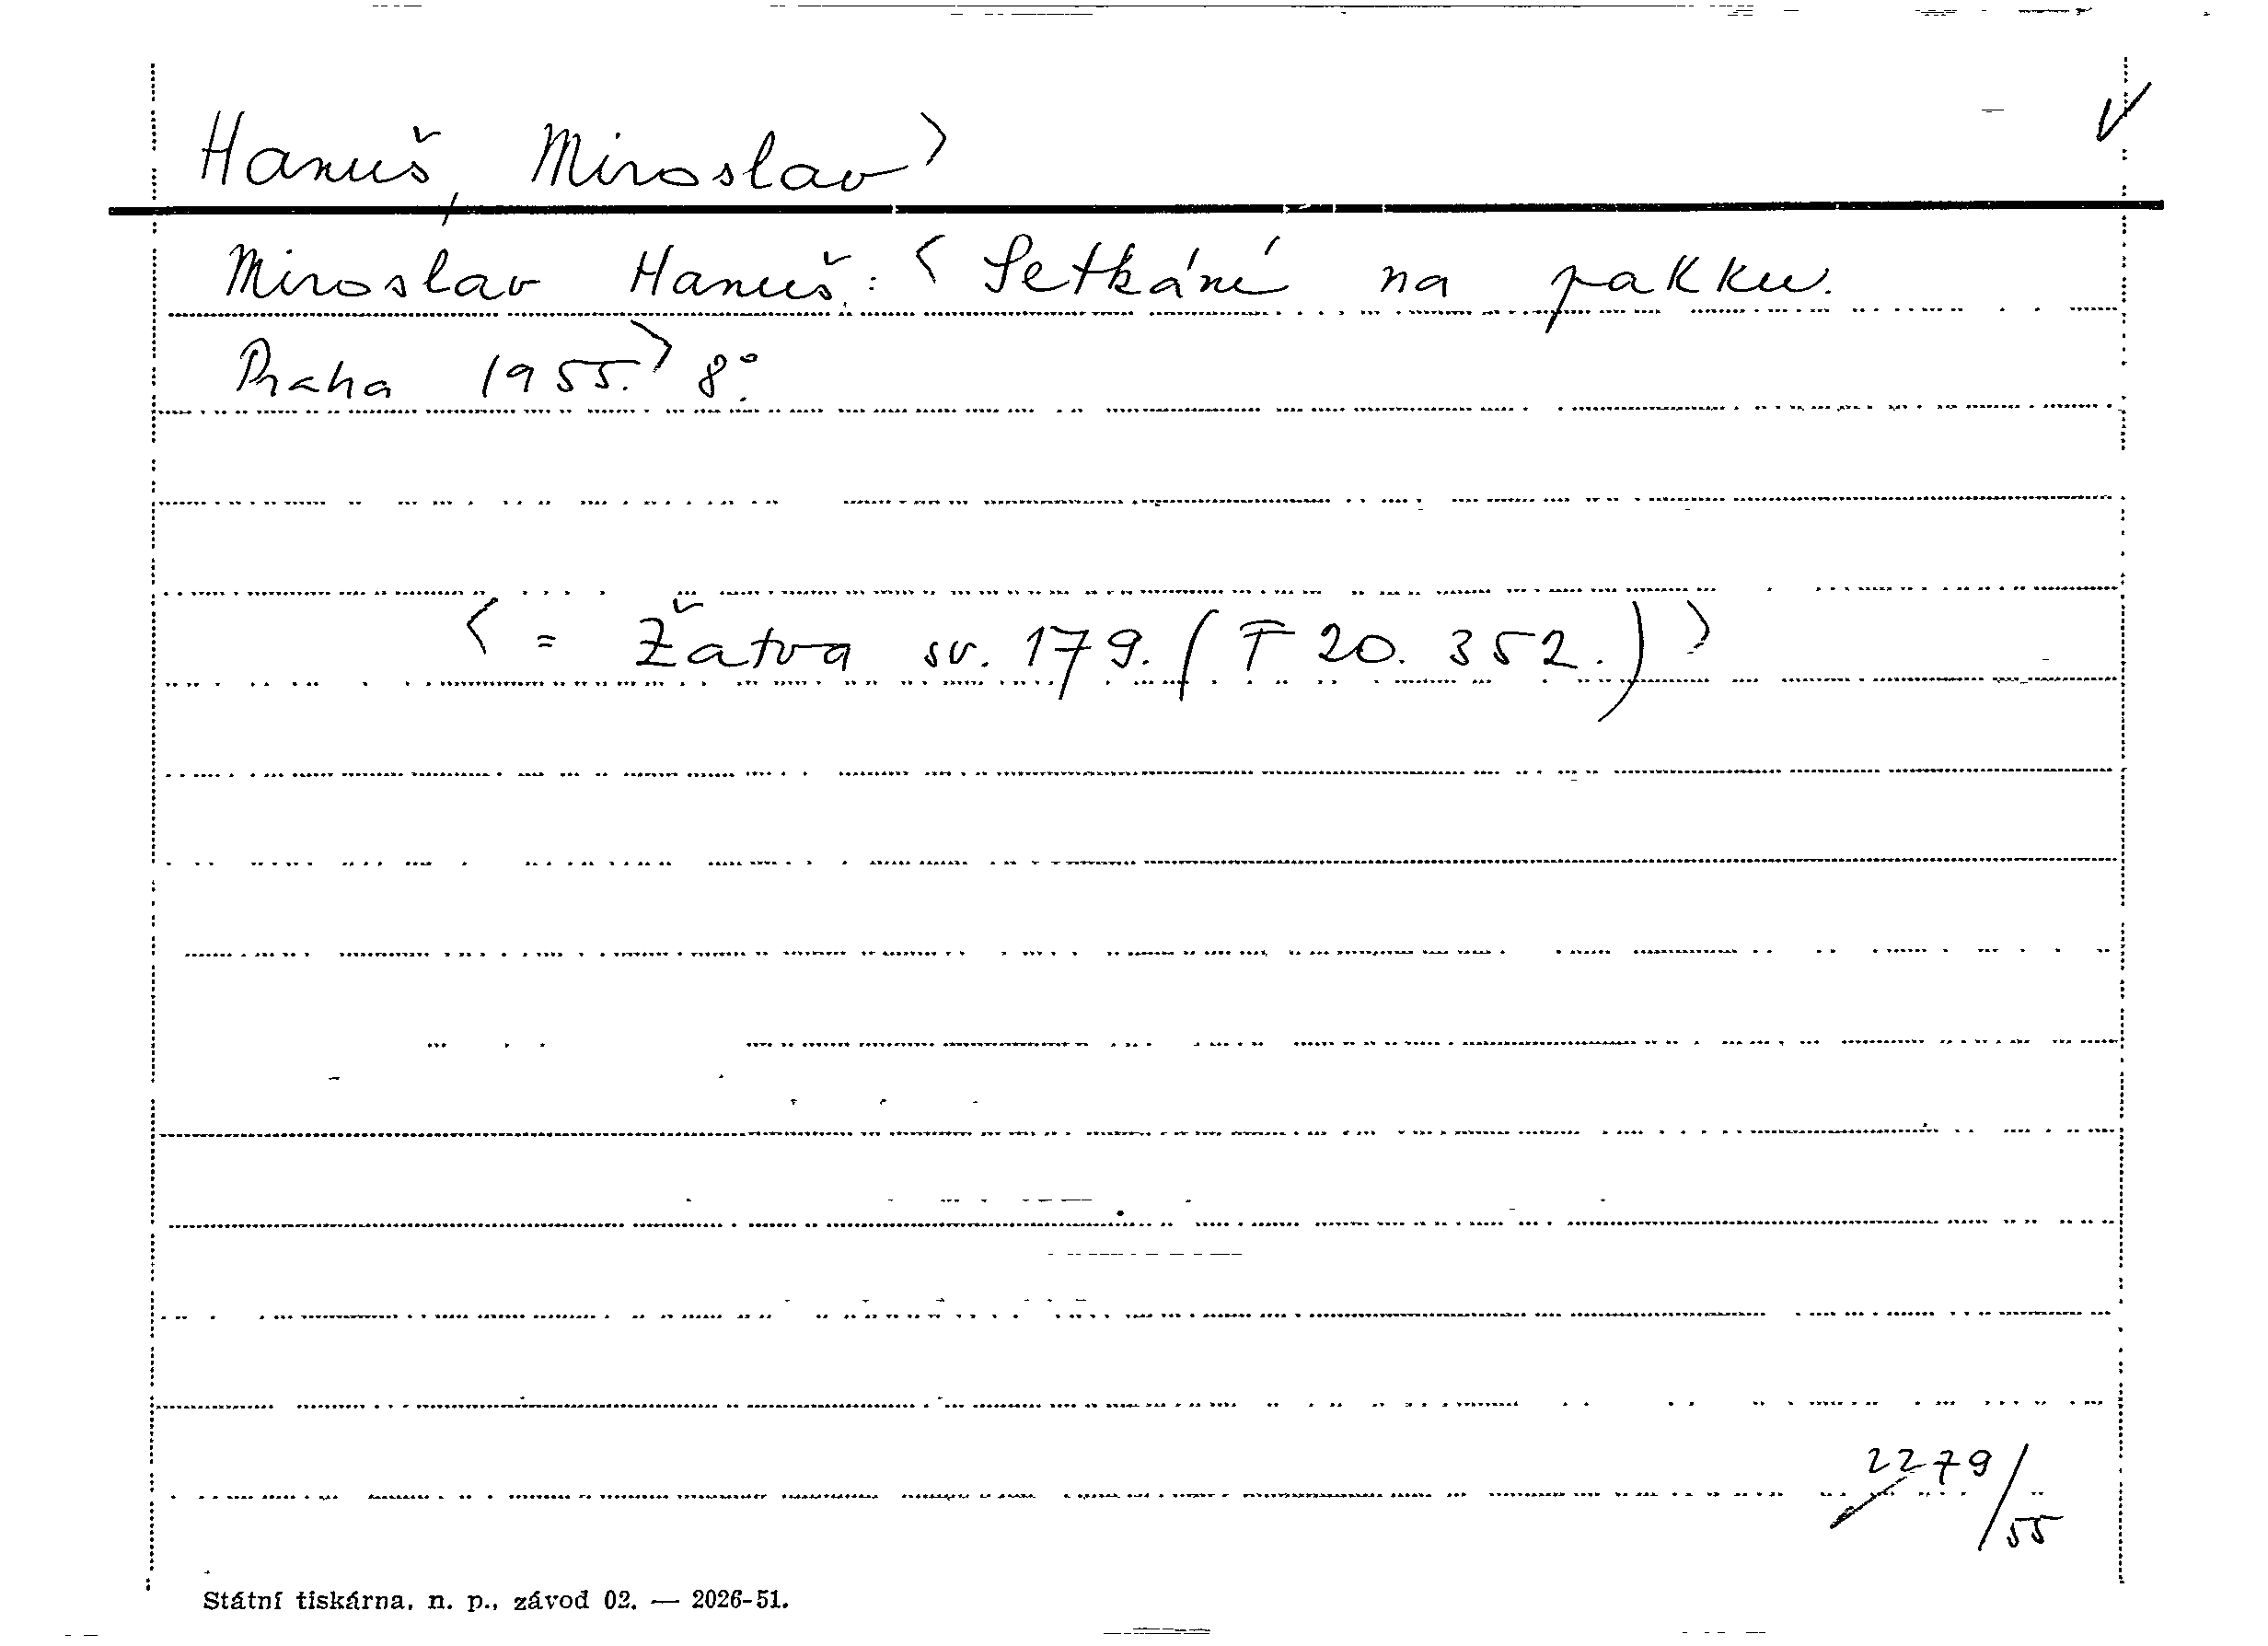 Hanuš, Miroslav>
Miroslav Hanuš: <Setkání na pakku.
Praha 1955.> 8°.
<= Žatva sv. 179. (T 20. 352.)>
2279/55
Státní tiskárna, n. p., závod 02. — 2026-51.